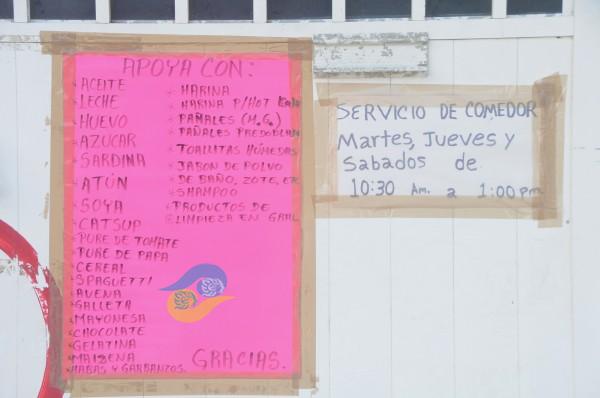 APOYA CON:
ACEITE
LECHE
HUEVO
AZUCAR
SARDINA
ATÚN
SOYA
CATSUP
PURE DE TOMATE
PURE DE PAPA
CEREAL
SPAGUETTI
AVENA
GALLETA
MAYONESA
CHOCOLATE
GELATINA
MAIZENA
HABAS Y GARBANZOS.
HARINA
HARINA P/HOT
PAÑALES (M.G.)
PAÑALES PREDOBLAN
TOALLITAS HÚMEDAS
JABON DE POLVO
DE BAÑO, ZOTE, ETC
SHAMPOO
PRODUCTOS DE
LIMPIEZA EN GRAL
GRACIAS.
SERVICIO DE COMEDOR
Martes, Jueves y
Sabados de
10:30 Am. a 1:00 pm